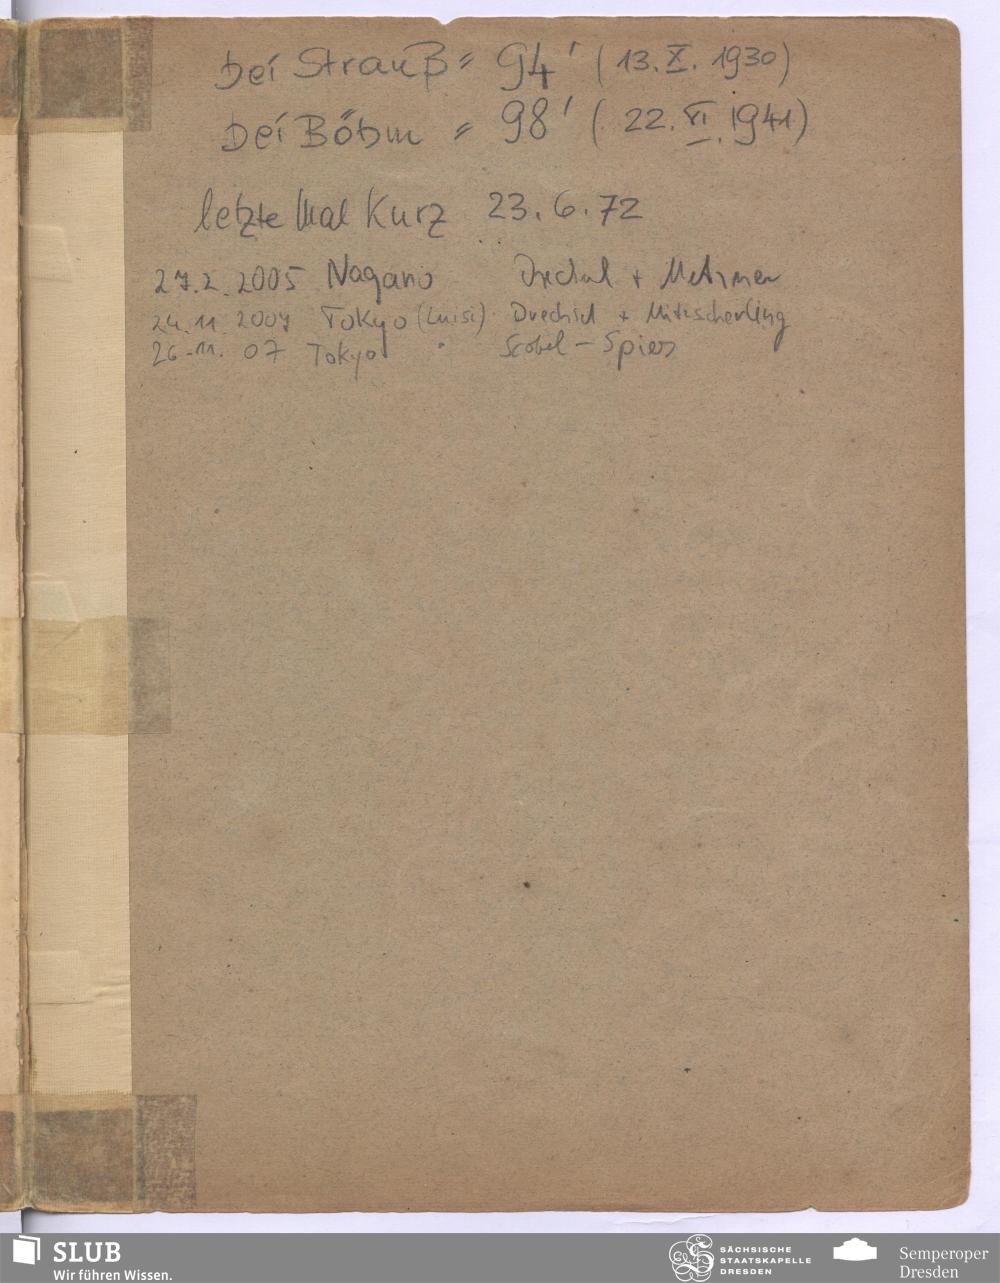 bei Strauß = 94' (13. X. 1930)
bei Böhm = 98' (22. VI. 1941)
letzte Mal Kurz 23. 6. 72
27.2. 2005 Nagano Drechsel + Metzner
24.11. 2007 Tokyo (Luisi) Drechsel + Mitzscherling
26.11. 07 Tokyo " Scobel – Spies
SLUB
Wir führen Wissen.
SÄCHSISCHE
STAATSKAPELLE
DRESDEN
Semperoper
Dresden